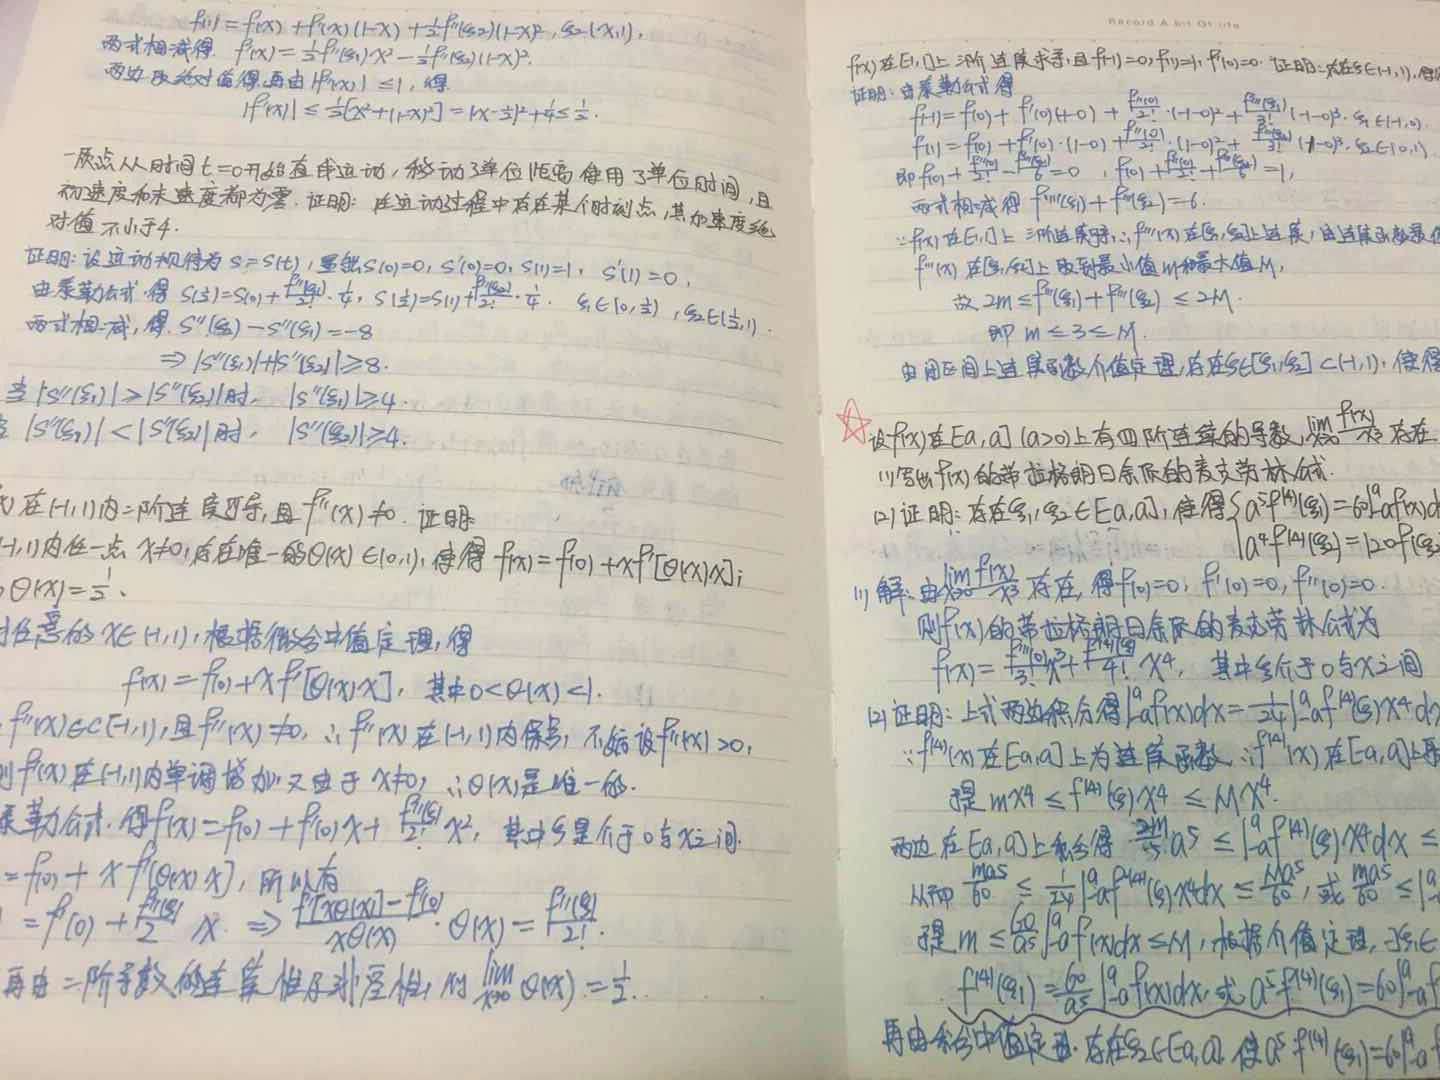 f(1)=f(x)+f'(x)(1-x)+½f''(ξ₂)(1-x)², ξ₂∈(x,1),
两式相减得 f'(x)=½f''(ξ₁)x²-½f''(ξ₂)(1-x)².
两边取绝对值得,再由|f''(x)|≤1,得
|f'(x)|≤½[x²+(1-x)²]=(x-½)²+¼≤½.
一质点从时间t=0开始直线运动,移动了单位距离使用了单位时间,且
初速度和末速度都为零.证明:在运动过程中存在某个时刻点,其加速度绝
对值不小于4.
证明:设运动规律为 S=S(t),显然S(0)=0, S'(0)=0, S(1)=1, S'(1)=0,
由泰勒公式.得 S(½)=S(0)+f''(ξ₁)/2!·¼, S(½)=S(1)+f''(ξ₂)/2!·¼. ξ₁∈(0,½), ξ₂∈(½,1).
两式相减,得 S''(ξ₂)-S''(ξ₁)=-8
⇒|S''(ξ₁)|+|S''(ξ₂)|≥8.
当|S''(ξ₁)|≥|S''(ξ₂)|时, |S''(ξ₁)|≥4.
|S''(ξ₁)|<|S''(ξ₂)|时, |S''(ξ₂)|≥4.
在(-1,1)内二阶连续可导,且f''(x)≠0.证明:
(-1,1)内任一点 x≠0,存在唯一的θ(x)∈(0,1),使得 f(x)=f(0)+xf'[θ(x)x];
θ(x)=½.
对任意的 x∈(-1,1),根据微分中值定理,得
f(x)=f(0)+xf'[θ(x)x], 其中0<θ(x)<1.
f''(x)∈C(-1,1),且f''(x)≠0,∴f''(x)在(-1,1)内保号,不妨设f''(x)>0,
则f'(x)在(-1,1)内单调增加,又由于 x≠0,∴θ(x)是唯一的.
泰勒公式.得f(x)=f(0)+f'(0)x+f''(ξ)/2! x², 其中ξ是介于0与x之间.
=f(0)+xf'[θ(x)x],所以有
=f'(0)+f''(ξ)/2 x ⇒ f'[xθ(x)]-f'(0)/xθ(x)·θ(x)=f''(ξ)/2!.
再由二阶导数的连续性及非零性,则 lim x→0 θ(x)=½.
Record A bit Of life
f(x)在[-1,1]上三阶连续可导,且f(-1)=0,f(1)=1,f'(0)=0.证明:存在ξ∈(-1,1),
证明:由泰勒公式得
f(-1)=f(0)+f'(0)(-1-0)+f''(0)/2!·(-1-0)²+f'''(ξ₁)/3!(-1-0)³. ξ₁∈(-1,0).
f(1)=f(0)+f'(0)·(1-0)+f''(0)/2!·(1-0)²+f'''(ξ₂)/3!(1-0)³. ξ₂∈(0,1).
即f(0)+f''(0)/2!-f'''(ξ₁)/6=0, f(0)+f''(0)/2!+f'''(ξ₂)/6=1,
两式相减得 f'''(ξ₁)+f'''(ξ₂)=6.
∵f(x)在[-1,1]上三阶连续可导,∴f'''(x)在[ξ₁,ξ₂]上连续,由连续函数最值
f'''(x)在[ξ₁,ξ₂]上取到最小值m和最大值M,
故 2m≤f'''(ξ₁)+f'''(ξ₂)≤2M.
即 m≤3≤M.
由闭区间上连续函数介值定理,存在ξ∈[ξ₁,ξ₂]⊂(-1,1),使得
设f(x)在[-a,a](a>0)上有四阶连续的导数,lim x→0 f(x)/x³ 存在
(1)写出f(x)的带拉格朗日余项的麦克劳林公式.
(2)证明:存在ξ₁,ξ₂∈[-a,a],使得{a⁵f⁽⁴⁾(ξ₁)=60∫₋ₐᵃf(x)d
a⁴f⁽⁴⁾(ξ₂)=120f(ξ₂
(1)解:由lim x→0 f(x)/x³ 存在,得f(0)=0, f'(0)=0, f''(0)=0.
则f(x)的带拉格朗日余项的麦克劳林公式为
f(x)=f'''(0)/3! x³+f⁽⁴⁾(ξ)/4! x⁴, 其中ξ介于0与x之间
(2)证明:上式两边积分得∫₋ₐᵃf(x)dx=1/24∫₋ₐᵃf⁽⁴⁾(ξ)x⁴d
∵f⁽⁴⁾(x)在[-a,a]上为连续函数,∴f⁽⁴⁾(x)在[-a,a]上
于是 mx⁴≤f⁽⁴⁾(ξ)x⁴≤Mx⁴.
两边在[-a,a]上积分得 2m/5 a⁵≤∫₋ₐᵃf⁽⁴⁾(ξ)x⁴dx≤
从而 ma⁵/60≤1/24∫₋ₐᵃf⁽⁴⁾(ξ)x⁴dx≤Ma⁵/60,或 ma⁵/60≤∫₋ₐ
于是 m≤60/a⁵∫₋ₐᵃf(x)dx≤M,根据介值定理,∃ξ₁∈
f⁽⁴⁾(ξ₁)=60/a⁵∫₋ₐᵃf(x)dx,或 a⁵f⁽⁴⁾(ξ₁)=60∫₋ₐᵃf
再由积分中值定理.存在ξ₂∈[-a,a].使a⁵f⁽⁴⁾(ξ₁)=60∫₋ₐᵃf